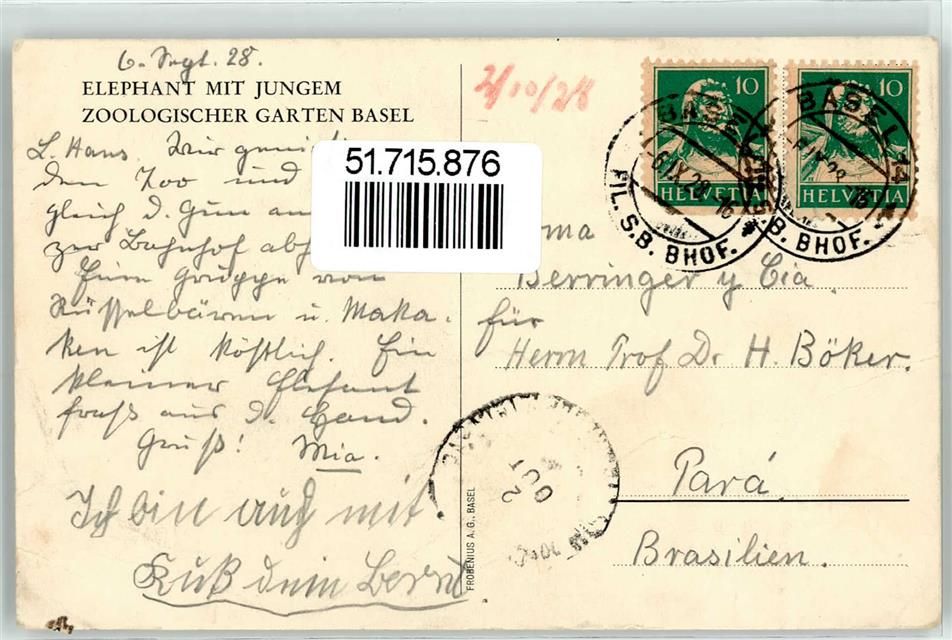 6. Sept. 28.
ELEPHANT MIT JUNGEM
ZOOLOGISCHER GARTEN BASEL
L. Hans. Wir
den Zoo und
gleich d.
zur Bahnhof
Eine Gruppe von
Rüsselbären u. Maka-
ken ist köstlich. Ein
kleiner Elefant
fraß aus d. Hand.
Gruß! Mia.
Ich bin auch mit
Kuß dein Bernd
51.715.876
FROBENIUS A. G., BASEL
2/10/28
10
HELVETIA
10
HELVETIA
BASEL
6.IX.28.16
FIL. S.B. BHOF.
BASEL 14
FIL. S.B. BHOF.
Berringer y Cia.
für
Herrn Prof. Dr. H. Böker.
Pará.
Brasilien.
2 OCT